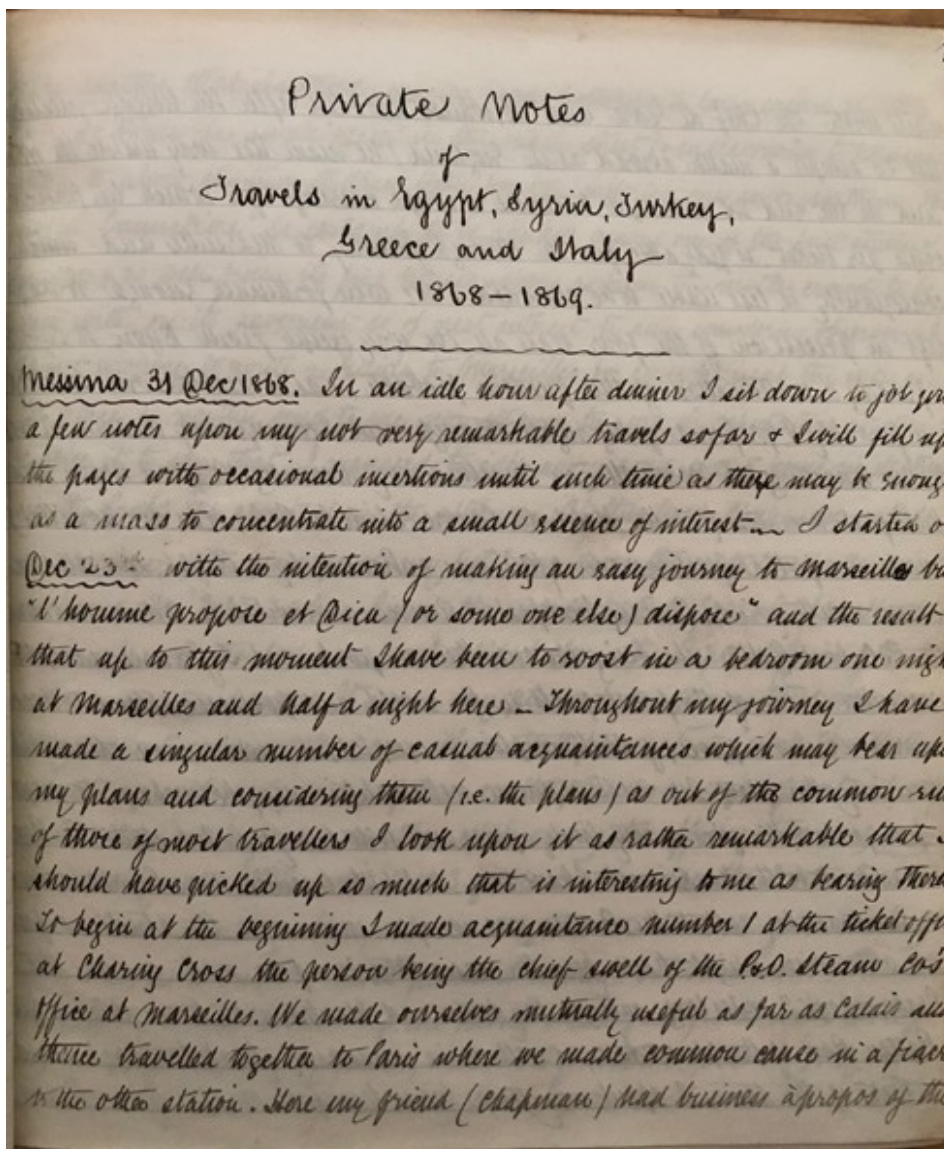 Private Notes
of
Travels in Egypt, Syria, Turkey,
Greece and Italy
1868–1869.
Messina 31 Dec 1868. In an idle hour after dinner I sit down to jot
a few notes upon my not very remarkable travels sofar & I will fill up
the pages with occasional insertions until such time as there may be enoug
as a mass to concentrate into a small essence of interest — I started o
Dec 23rd with the intention of making an easy journey to Marseilles bu
"l'homme propose et Dieu (or some one else) dispose" and the result
that up to this moment I have been to roost in a bedroom one nigh
at Marseilles and half a night here — Throughout my journey I have
made a singular number of casual acquaintances which may bear upo
my plans and considering them (i.e. the plans) as out of the common ru
of those of most travellers I look upon it as rather remarkable that I
should have picked up so much that is interesting to me as bearing there
To begin at the beginning I made acquaintance number 1 at the ticket offi
at Charing Cross the person being the chief swell of the P&O. Steam Co's
Office at Marseilles. We made ourselves mutually useful as far as Calais and
thence travelled together to Paris where we made common cause in a fiacr
to the other station. Here my friend (Chapman) had business àpropos of the